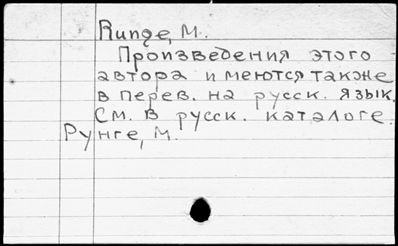 Runge, M.
Произведения этого
автора имеются также
в перев. на русск. язык.
См. в русск. каталоге.
Рунге, М.